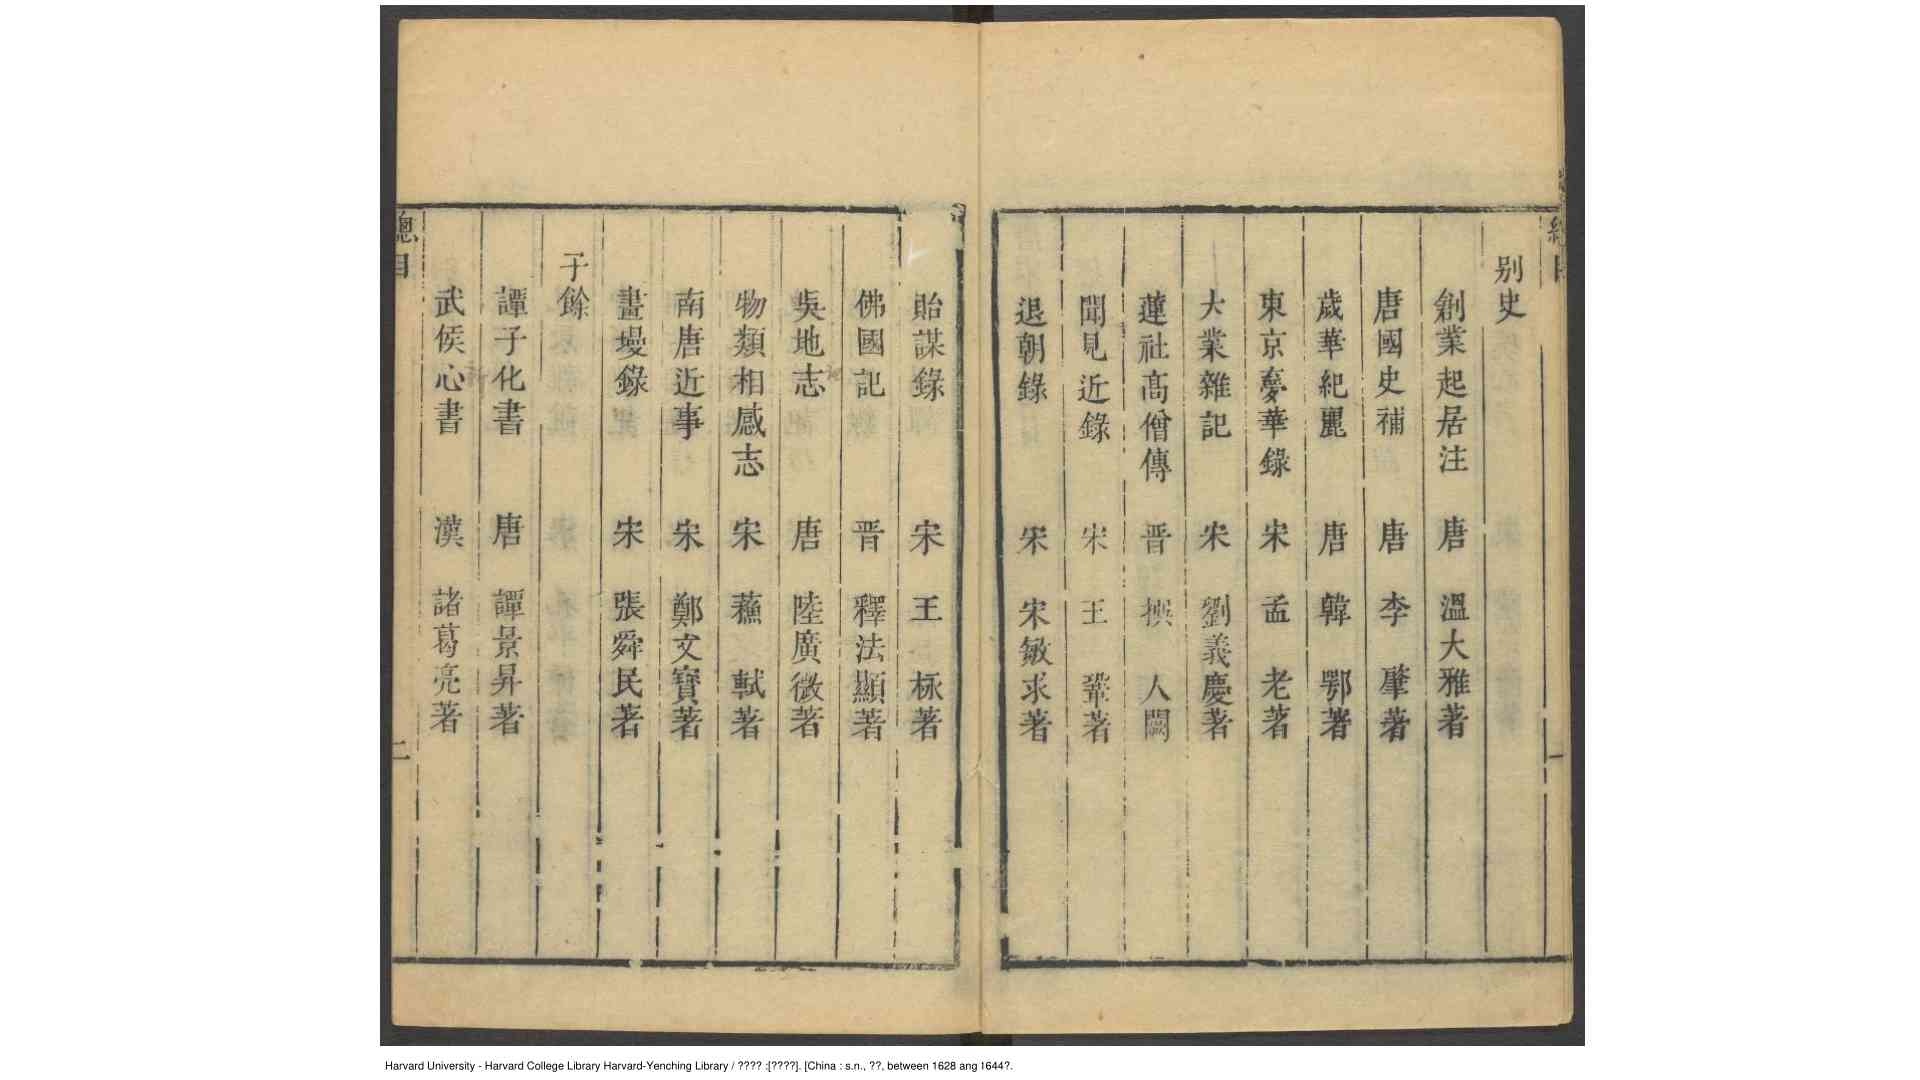 總目
别史
創業起居注 唐 溫大雅著
唐國史補 唐 李肇著
歲華紀麗 唐 韓鄂著
東京夢華錄 宋 孟老著
大業雜記 宋 劉義慶著
蓮社高僧傳 晋 撰人闕
聞見近錄 宋 王鞏著
退朝錄 宋 宋敏求著
一
貽謀錄 宋 王栐著
佛國記 晋 釋法顯著
吳地志 唐 陸廣微著
物類相感志 宋 蘓軾著
南唐近事 宋 鄭文寶著
畫墁錄 宋 張舜民著
子餘
譚子化書 唐 譚景昇著
武侯心書 漢 諸葛亮著
總目
二
Harvard University - Harvard College Library Harvard-Yenching Library / ???? :[????]. [China : s.n., ??, between 1628 ang 1644?.